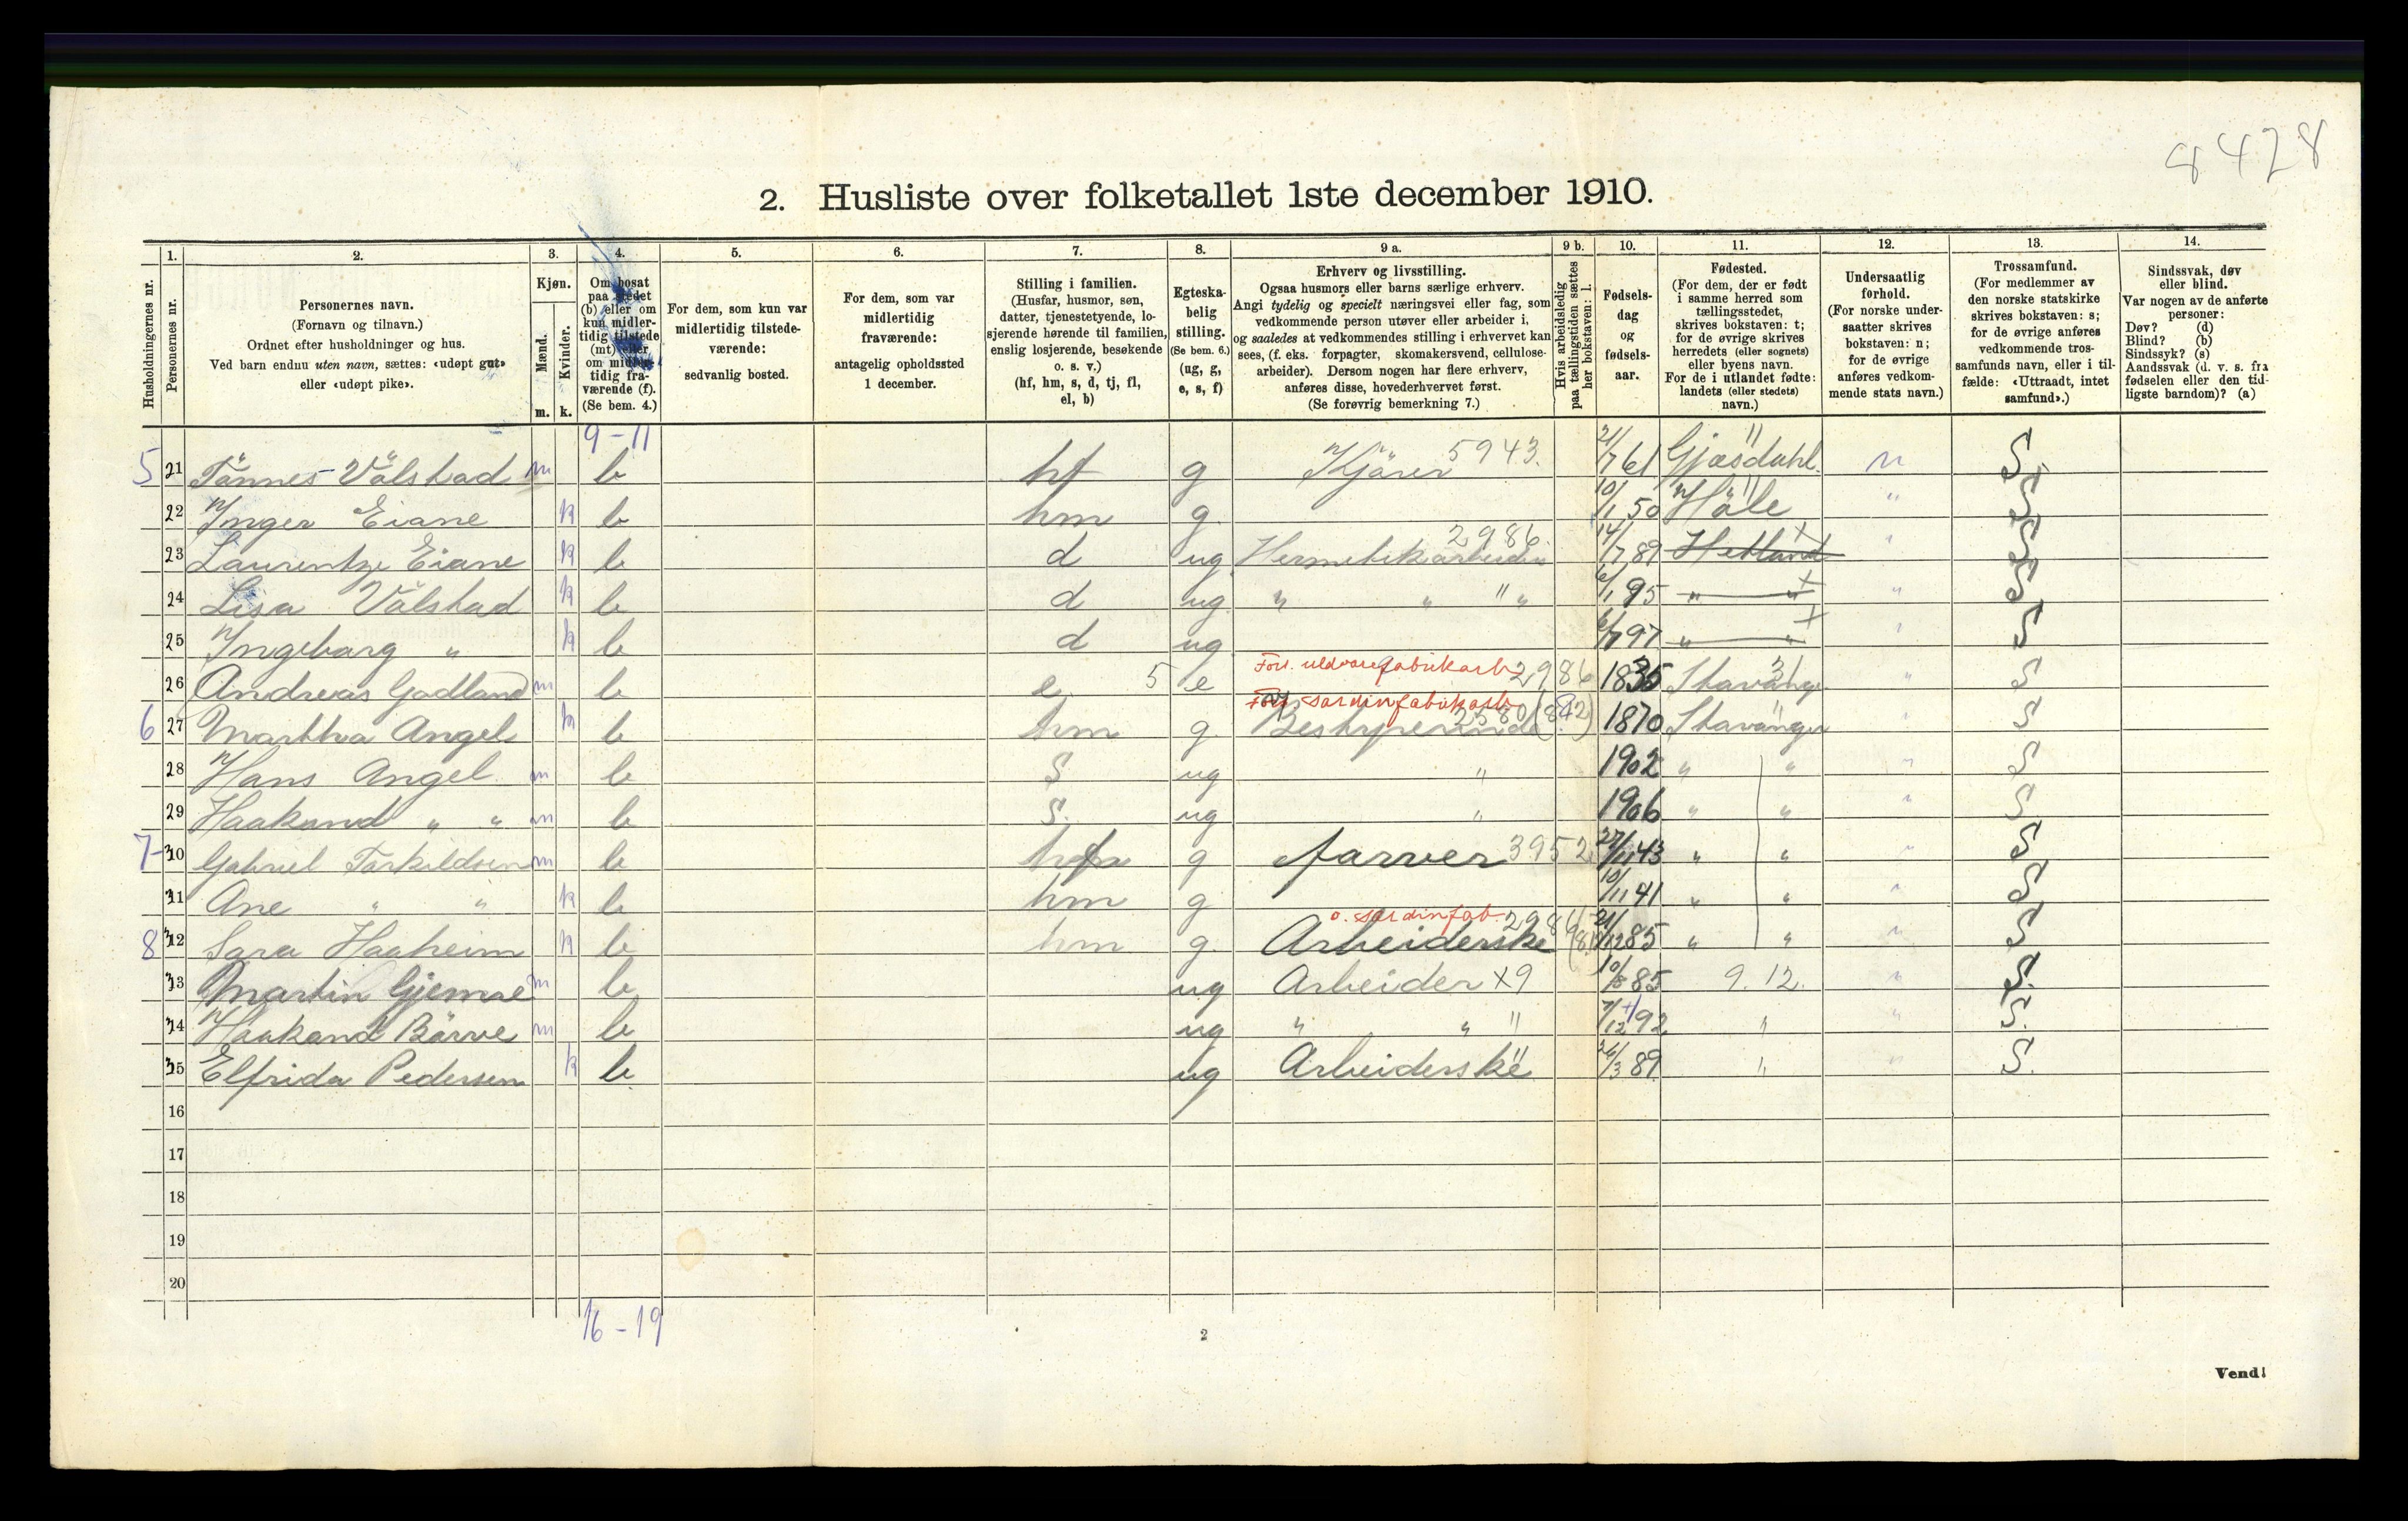 8428
2. Husliste over folketallet 1ste december 1910.
1. 2. 3. 4. 5. 6. 7. 8. 9 a. 9 b. 10. 11. 12. 13. 14.
Husholdningernes nr.
Personernes nr.
Personernes navn.
(Fornavn og tilnavn.)
Ordnet efter husholdninger og hus.
Ved barn endnu uten navn, sættes: «udøpt gut»
eller «udøpt pike».
Kjøn.
Mænd.
m.
Kvinder.
k.
Om bosat
paa stedet
(b) eller om
kun midler-
tidig tilstede
(mt) eller
om midler-
tidig fra-
værende (f).
(Se bem. 4.)
For dem, som kun var
midlertidig tilstede-
værende:
sedvanlig bosted.
For dem, som var
midlertidig
fraværende:
antagelig opholdssted
1 december.
Stilling i familien.
(Husfar, husmor, søn,
datter, tjenestetyende, lo-
sjerende hørende til familien,
enslig losjerende, besøkende
o. s. v.)
(hf, hm, s, d, tj, fl,
el, b)
Egteska-
belig
stilling.
(Se bem. 6.)
(ug, g,
e, s, f)
Erhverv og livsstilling.
Ogsaa husmors eller barns særlige erhverv.
Angi tydelig og specielt næringsvei eller fag, som
vedkommende person utøver eller arbeider i,
og saaledes at vedkommendes stilling i erhvervet kan
sees, (f. eks. forpagter, skomakersvend, cellulose-
arbeider). Dersom nogen har flere erhverv,
anføres disse, hovederhvervet først.
(Se forøvrig bemerkning 7.)
Hvis arbeidsledig
paa tællingstiden sættes
her bokstaven: l.
Fødsels-
dag
og
fødsels-
aar.
Fødested.
(For dem, der er født
i samme herred som
tællingsstedet,
skrives bokstaven: t;
for de øvrige skrives
herredets (eller sognets)
eller byens navn.
For de i utlandet fødte:
landets (eller stedets)
navn.)
Undersaatlig
forhold.
(For norske under-
saatter skrives
bokstaven: n;
for de øvrige
anføres vedkom-
mende stats navn.)
Trossamfund.
(For medlemmer av
den norske statskirke
skrives bokstaven: s;
for de øvrige anføres
vedkommende tros-
samfunds navn, eller i til-
fælde: «Uttraadt, intet
samfund».)
Sindssvak, døv
eller blind.
Var nogen av de anførte
personer:
Døv? (d)
Blind? (b)
Sindssyk? (s)
Aandssvak (d. v. s. fra
fødselen eller den tid-
ligste barndom)? (a)
9-11
5 21 Tönnes Välstad m b hf g Kjörer 5943. 21/7 61 Gjæsdahl n S
22 Inger Eiane k b hm g 10/1 50 Höle " S
23 Laurentze Eiane k b d ug Hermetikarbeider 2986 14/7 89 Hetland " S
24 Lisa Välstad k b d ug " " " 6/1 95 " " " S
25 Ingeborg " k b d ug 6/7 97 " " " S
26 Andreas Godland m b e 5 e Forr. uldvarefabrikarb 2986 1835 Stavanger " S
6 27 Marthra Angel k b hm g Bestyrerinde 2580 (842) 1870 Stavanger " S
28 Hans Angel m b S ug " 1902 " " " S
29 Haakand " " m b S. ug " 1906 " " " S
7 30 Gabriel Torkildsen m b hf g farver 3952 27/11 43 " " " S
31 Ane " " k b hm g 10/11 41 " " " S
8 32 Sara Haaheim k b hm g. Arbeiderske o. sardinfab. 2986 21/12 85 " " " S
33 Martin Gjemre m b ug Arbeider X9 10/8 85 9. 12. " S.
34 Haakand Börve m b ug " " " 7/12 92 " " S.
35 Elfrida Pedersen k b ug Arbeiderske 26/3 89 " " S.
16
17
18
19
20
16-19
2
Vend!